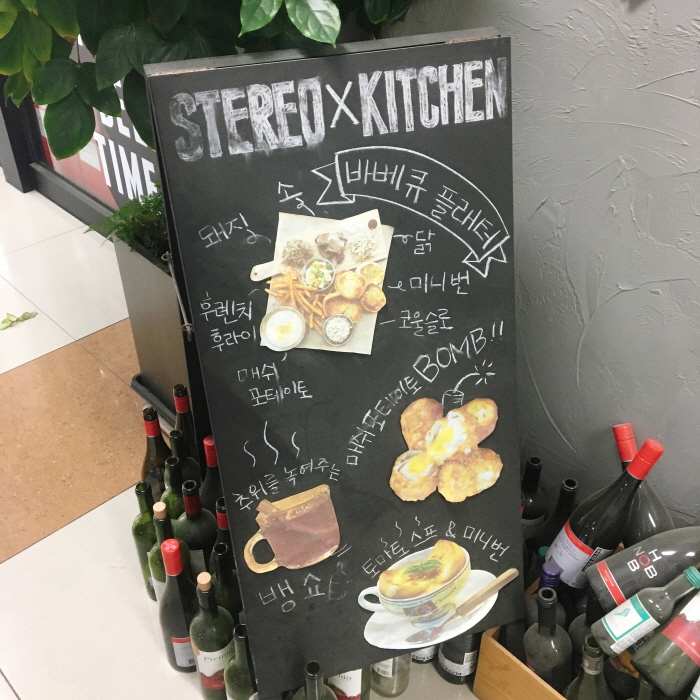 STEREO X KITCHEN
바베큐 플래터
돼지
솟
닭
후렌치
후라이
미니번
코울슬로
매쉬
포테이토
매쉬포테이토 BOMB!!
추위를 녹여주는
뱅쇼
토마토스프 & 미니번
TIME
HOB
NOB